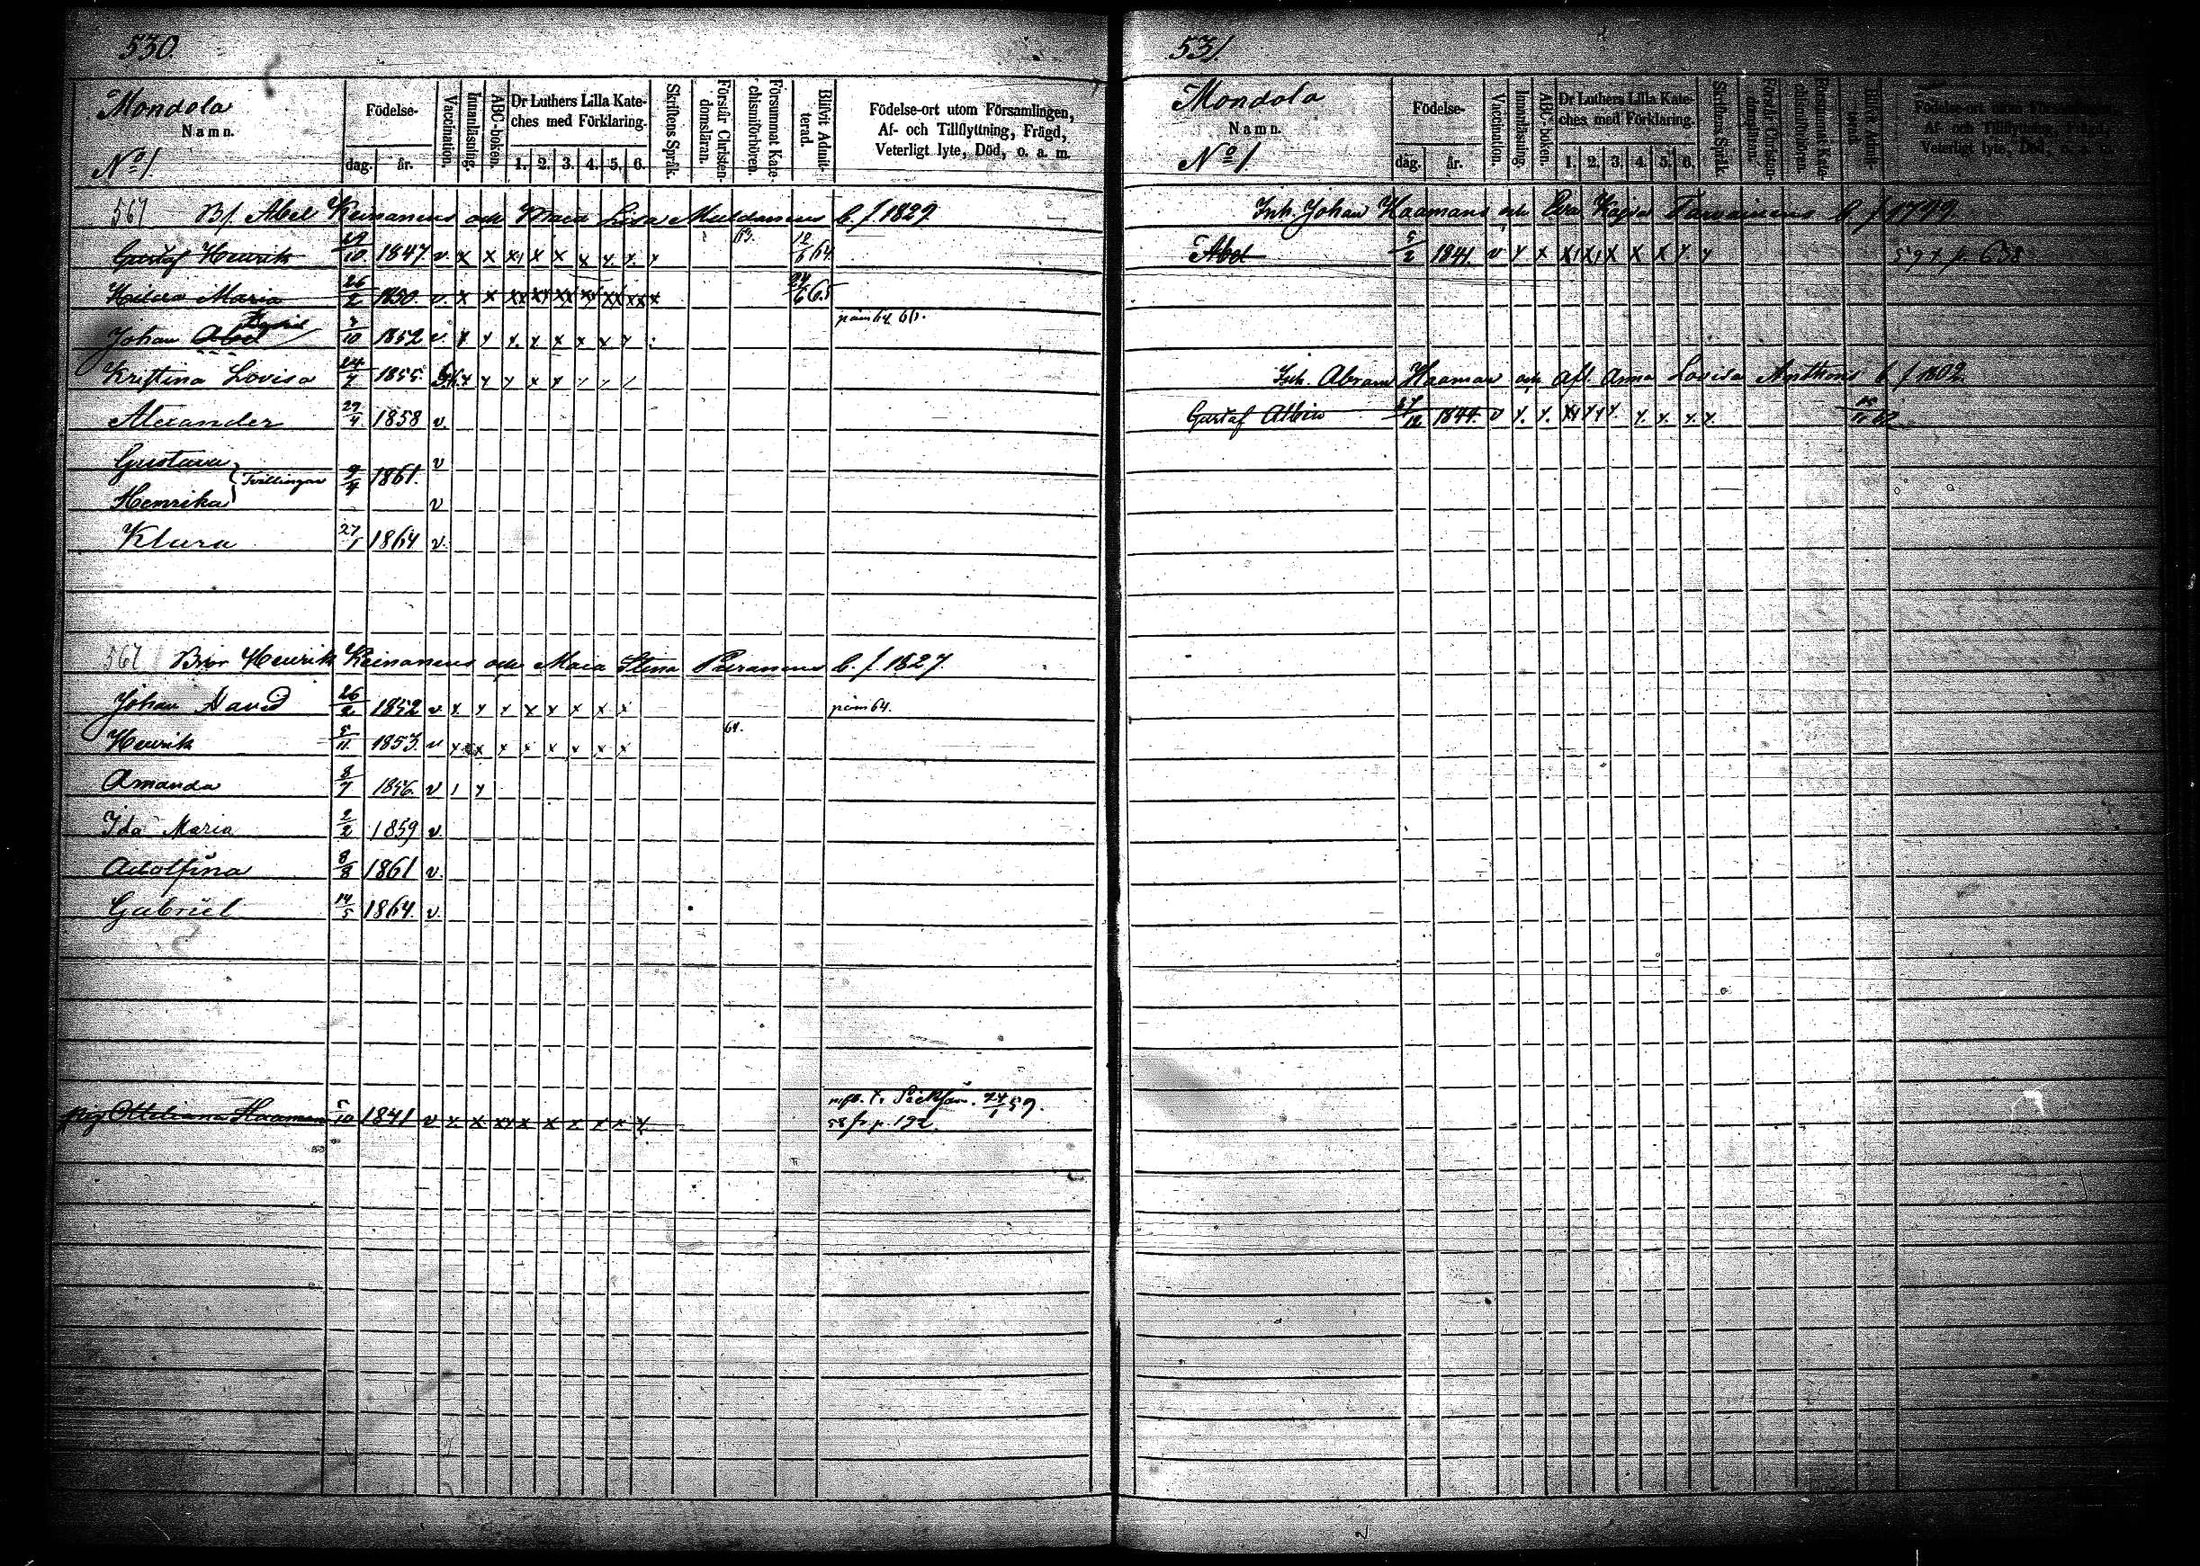 530.
Mondola
Namn.
No 1
Födelse-
dag. år.
Vaccination.
Innanläsning.
ABC-boken.
Dr Luthers Lilla Kate-
ches med Förklaring.
1. 2. 3. 4. 5. 6.
Skriftens Språk.
Förstår Christen-
domsläran.
Försummat Kate-
chismiförhören.
Blifvit Admit-
terad.
Födelse-ort utom Församlingen,
Af- och Tillflyttning, Frägd,
Veterligt lyte, Död, o. a. m.
567 B/ Abel Keinanens och Maia Lisa Muldanens b. f. 1829
Gustaf Henrik 29/10 1847. v. x x x x x x x x x 63. 12/6 64.
Hilda Maria 26/2 1850. v. x x xx xx xx xx xx xx x 24/6 65
Johan Abel 3/10 1852 v. x x x x x x x x
Kristina Lovisa 24/2 1855.
Alexander 29/4 1858 v.
Gustava v
Tvillingar 9/4 1861.
Henrika v
Klara 27/1 1864 v.
567 Bror Henrik Keinanens och Maia Stina Puranens b. f. 1827.
Johan David 26/2 1852 v x x x x x x x x
Henrik 5/11 1853. v x x x x x x x x 64.
Amanda 8/7 1856. v
Ida Maria 2/2 1859 v.
Adolfina 8/8 1861 v.
Gabriel 14/5 1864 v.
pig Ottiliana Haaman 5/10 1841 v x x xx x x x x x x 24/1 59.
58 fr p. 192.
531.
Mondola
Namn.
No 1.
Födelse-
dag. år.
Vaccination.
Innanläsning.
ABC-boken.
Dr Luthers Lilla Kate-
ches med Förklaring.
1. 2. 3. 4. 5. 6.
Skriftens Språk.
Förstår Christen-
domsläran.
Försummat Kate-
chismiförhören.
Blifvit Admit-
terad.
Födelse-ort utom Församlingen,
Af- och Tillflyttning, Frägd,
Veterligt lyte, Död, o. a. m.
Inh. Johan Haamans och Eva Kajsa b. f 1799.
Abel 5/2 1841. v x x x x x x x x x 59 t. p. 638
Inh. Abram Haaman och Afl. Anna Lovisa Anttons b. f 1802.
Gustaf Albin 27/12 1844. v